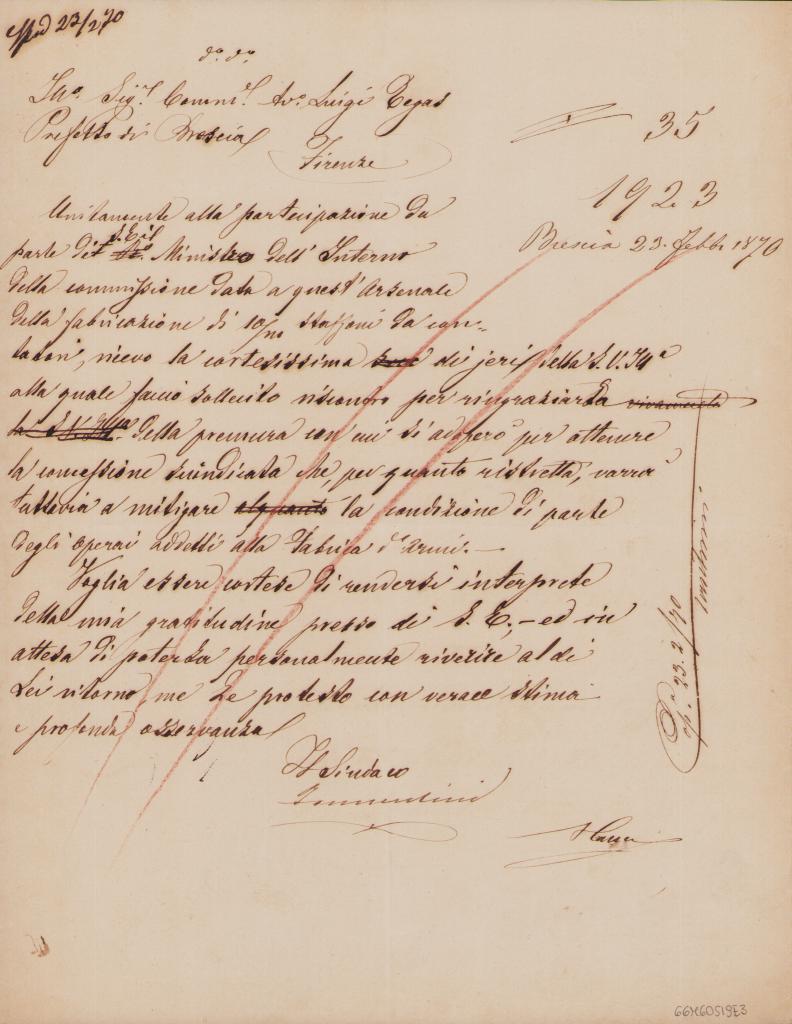 Sped 23/2 70
d.o d.o
Ill.o Sig.r Comm.r Av.o Luigi Tegas
Prefetto di Brescia
Firenze
35
1923
Brescia 23. Febb. 1870
Unitamente alla partecipazione da
parte di S. E. il Ministro dell'Interno
della commissione data a quest'Arsenale
della fabricazione di 10/m staffoni da con-
tatori, ricevo la cortesissima di jeri della S. V. Ill.a
alla quale faccio sollecito riscontro per ringraziarLa vivamente
la S. V. Ill.ma della premura con cui si adoperò per ottenere
la concessione suindicata che, per quanto ristretta, varrà
tuttavia a mitigare alquanto la condizione di parte
degli operai addetti alla Fabrica d'Armi. —
Voglia essere cortese di rendersi interprete
della mia gratitudine presso di S. E., – ed in
attesa di poterLa personalmente riverire al di
Lei ritorno, me Le protesto con verace stima
e profonda osservanza
Il Sindaco
23. 2/70
66M60519E3